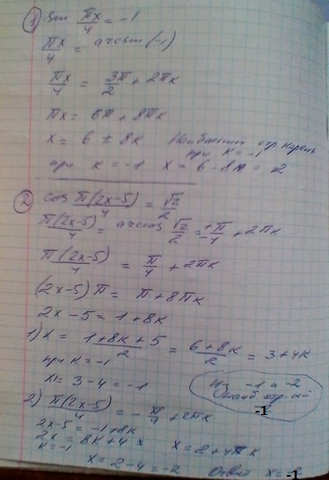 ① sin πx/4 = -1
πx/4 = arcsin(-1)
πx/4 = 3π/2 + 2πk
πx = 6π + 8πk
x = 6 + 8k Наибольший отр. корень
при k = -1
при k = -1 x = 6 - 8 = -2
② cos π(2x-5)/4 = √2/2
π(2x-5)/4 = arccos √2/2 = ±π/4 + 2πk
π(2x-5)/4 = π/4 + 2πk
(2x-5)π = π + 8πk
2x-5 = 1+8k
1) x = 1+8k+5/2 = 6+8k/2 = 3+4k
при k = -1
x = 3-4 = -1
Из -1 и -2
-1
2) π(2x-5)/4 = -π/4 + 2πk
2x-5 = -1+8k
2x = 8k+4 x = 2+4πk
k = -1
x = 2-4 = -2 Ответ x = -1